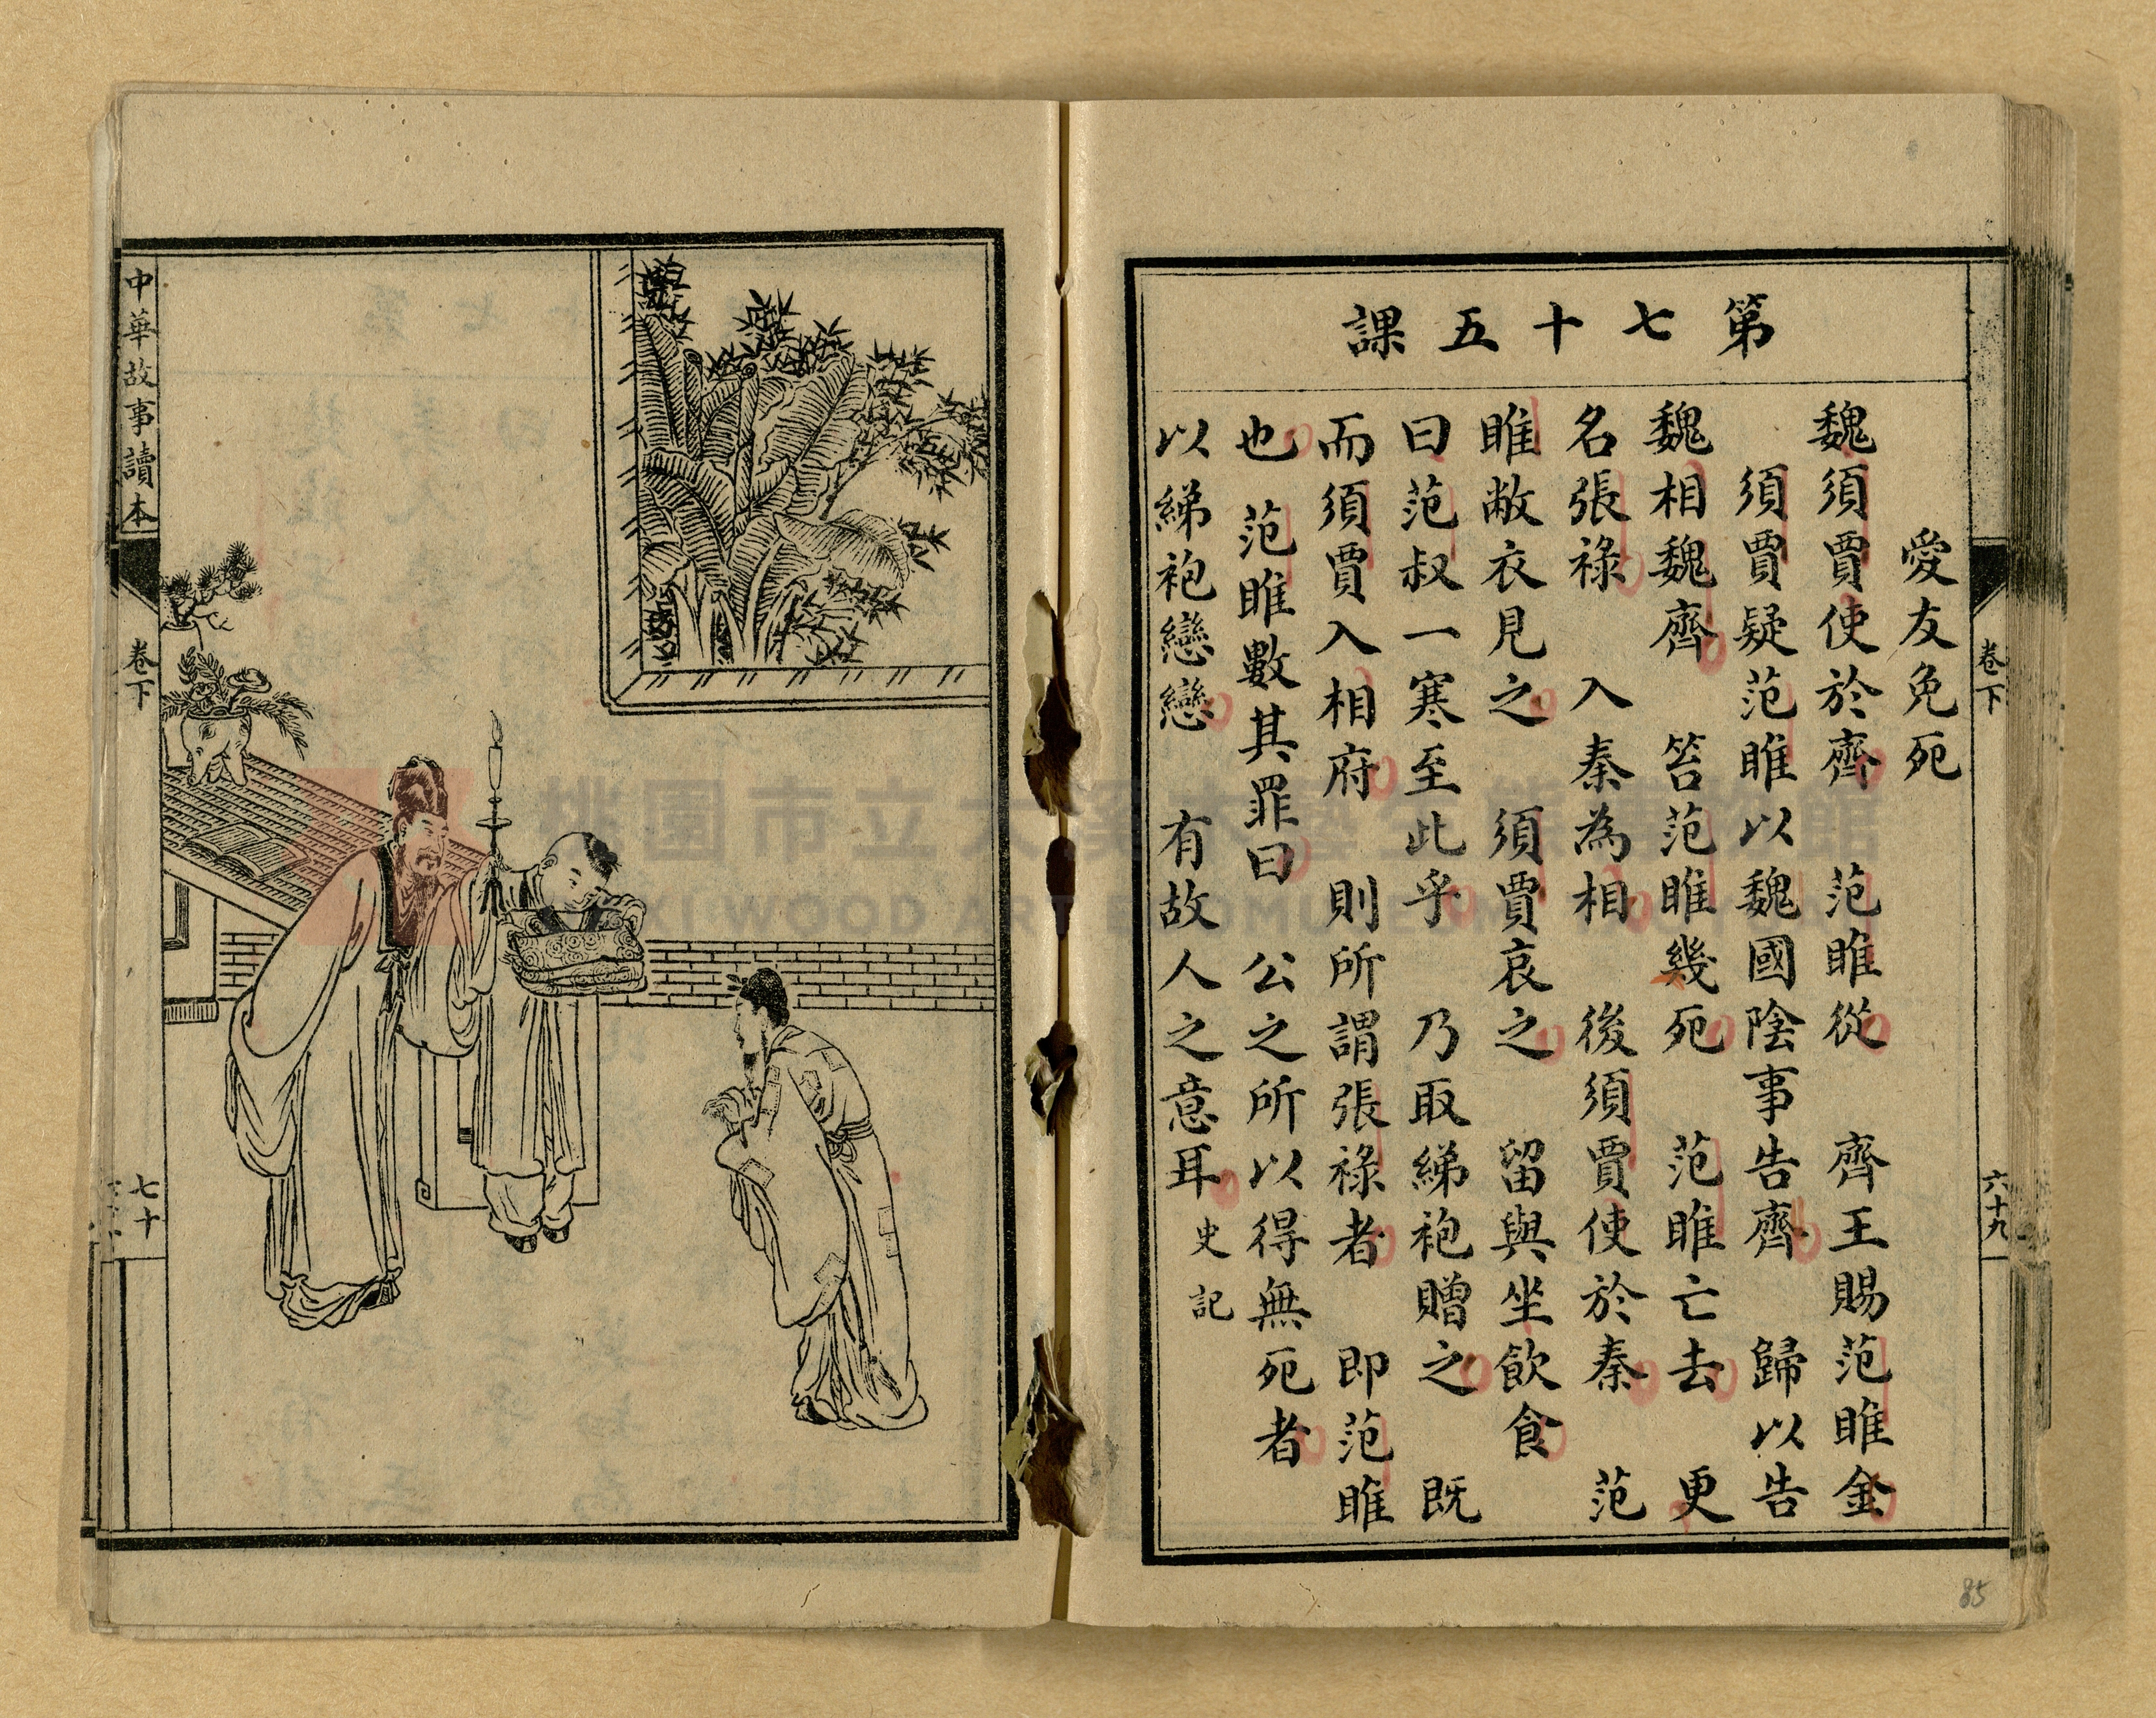 第七十五課
愛友免死
魏須賈使於齊　范雎從　齊王賜范雎金
須賈疑范雎以魏國陰事告齊　歸以告
魏相魏齊　笞范雎幾死　范雎亡去　更
名張祿　入秦為相　後須賈使於秦　范
雎敝衣見之　須賈哀之　留與坐飲食
曰范叔一寒至此乎　乃取綈袍贈之　既
而須賈入相府　則所謂張祿者　即范雎
也　范雎數其罪曰　公之所以得無死者
以綈袍戀戀　有故人之意耳　史記
卷下
六十九
85
中華故事讀本
卷下
七十
桃園市立大溪木藝生態博物館